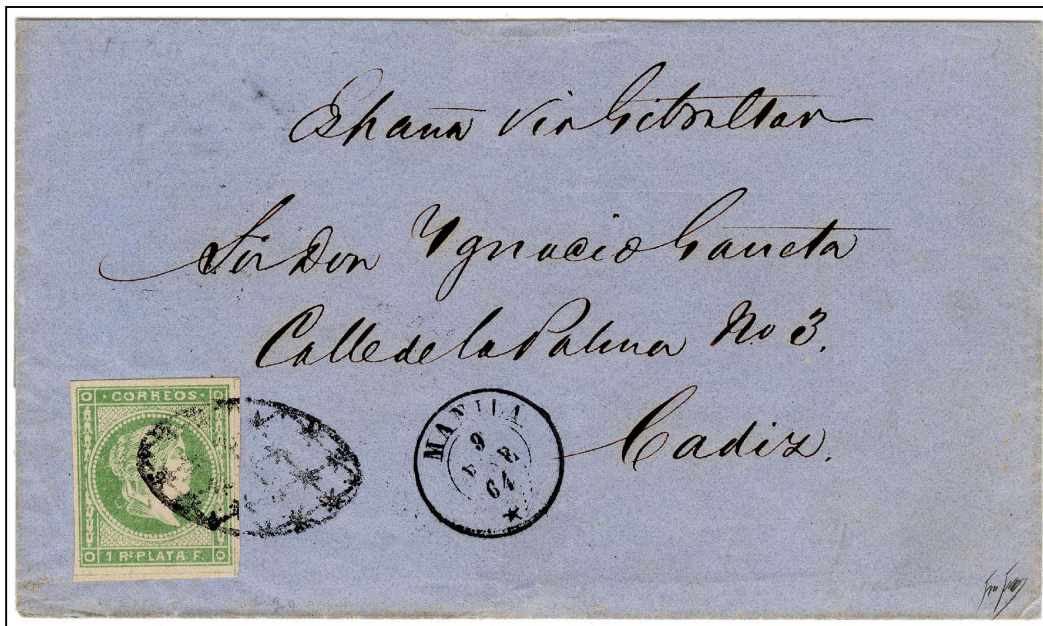 España via Gibraltar
Sr Don Ygnacio
Calle de la Palma No 3.
Cadiz.
CORREOS
1 Rl PLATA F.
MANILA
9
ENE
64